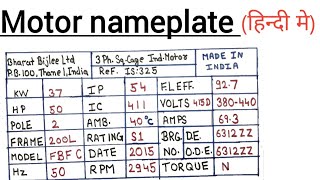 Motor nameplate (हिन्दी मे)
Bharat Bijlee Ltd 3 Ph. Sq. Cage Ind. Motor MADE IN
P.B.100, Thane I, India Ref. IS:325 INDIA
KW 37 IP 54 F.L EFF 92.7
HP 50 IC 411 VOLTS 415D 380-440
POLE 2 AMB. 40°C AMPS 69.3
FRAME 200L RATING S1 BRG. DE. 6312ZZ
MODEL FBFC DATE 2015 NO. O.D.E. 6312ZZ
Hz 50 RPM 2945 TORQUE N